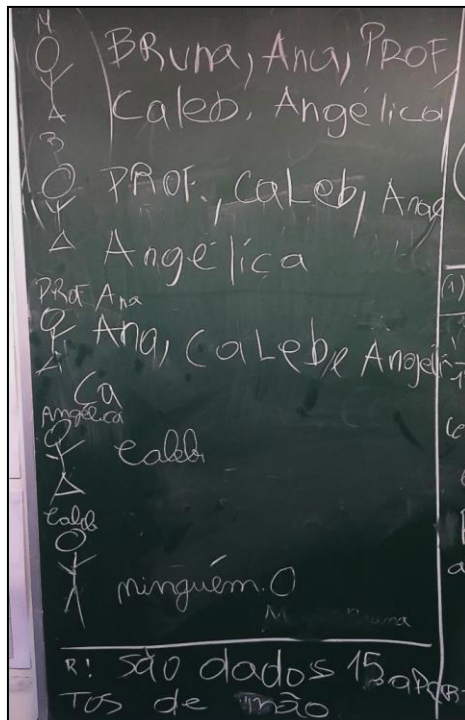 M
BRuna, Ana, PROF,
Caleb, Angélica
B
PROF., CaLeb, Ana e
Angélica
PROF Ana
Ana, CaLeb e Angéli
ca
Angélica
Caleb
Caleb
ninguém. O
M Bruna
R! São dados 15 apeR-
TOS de mão
(1)